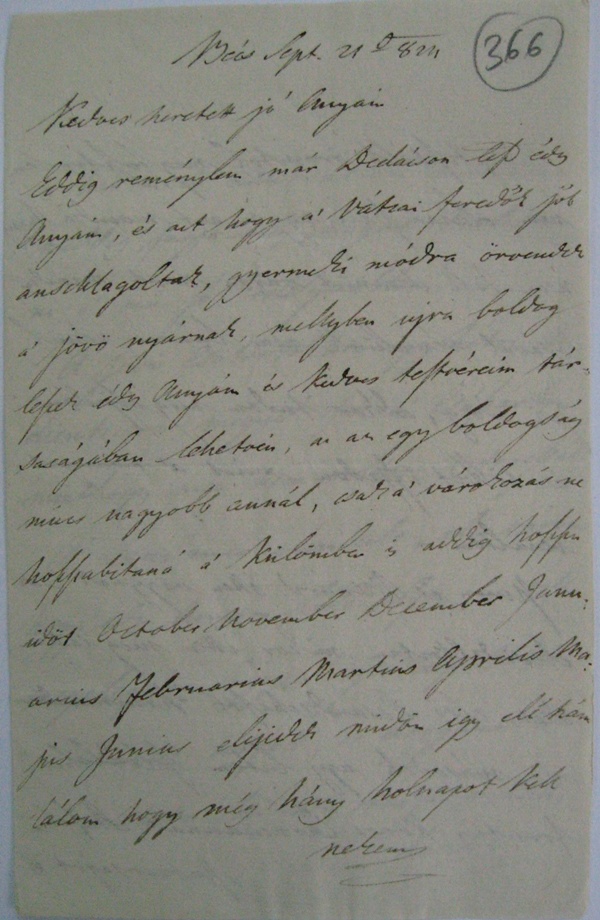 Bécs Sept. 21 824
366
Kedves szeretett jó Anyám
Eddig reménylem már Dedácson lesz édes
Anyám, és azt hogy a' Vátzai feredők jól
anschlagoltak, gyermeki módra örvendek
á jövö nyárnak, mellyben ujra boldog
leszek édes Anyám és kedves testvéreim tár-
saságában lehetvén, az az egy boldogság
nincs nagyobb annál, csak á várokozás ne
hosszabitaná á külömben is addig hosszu
időt October November December Janu-
arius Februarius Martius Aprilis Ma-
jus Junius elijedek midön igy elé szám
lálom hogy még hány holnapot kell
nekem